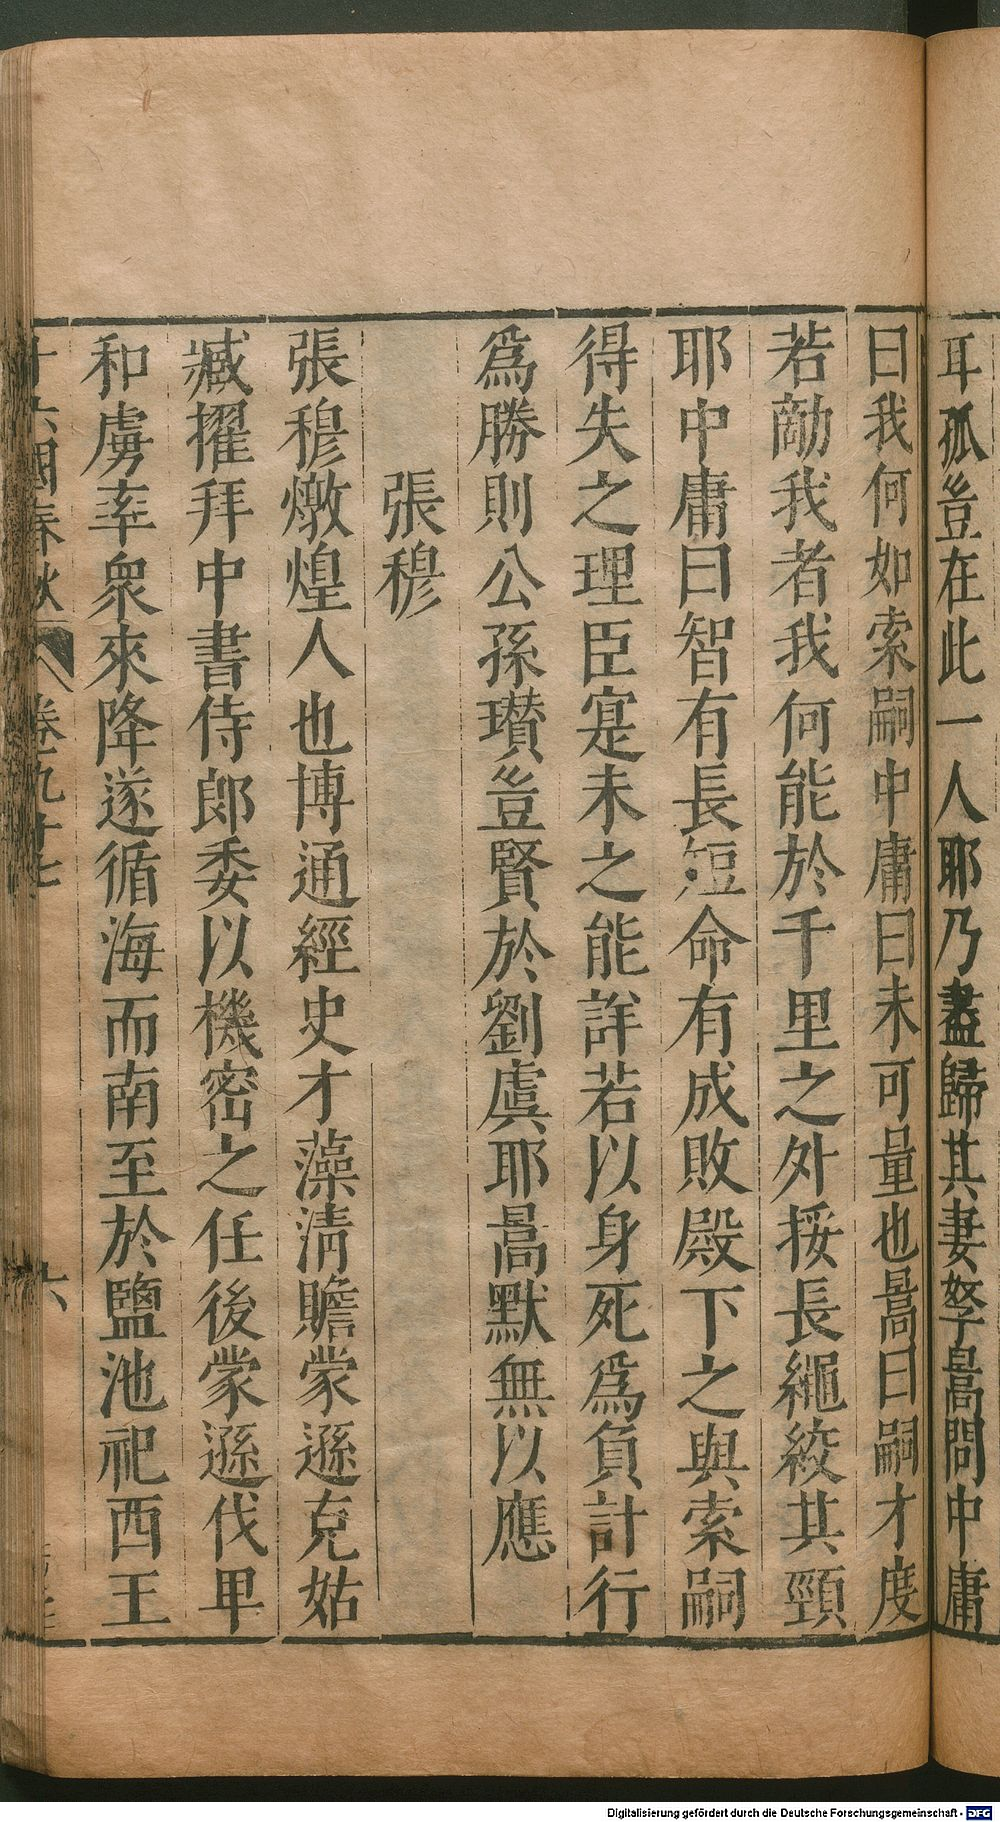 耳孤豈在此一人耶乃盡歸其妻孥暠問中庸
曰我何如索嗣中庸曰未可量也暠曰嗣才度
若敵我者我何能於千里之外挼長繩絞其頸
耶中庸曰智有長短命有成敗殿下之與索嗣
得失之理臣寔未之能詳若以身死爲負計行
爲勝則公孫瓚豈賢於劉虞耶暠默無以應
張穆
張穆燉煌人也博通經史才藻淸贍蒙遜克姑
臧擢拜中書侍郎委以機密之任後蒙遜伐卑
和虜率衆來降遂循海而南至於鹽池祀西王
十六國春秋 卷九十七 六
Digitalisierung gefördert durch die Deutsche Forschungsgemeinschaft - DFG